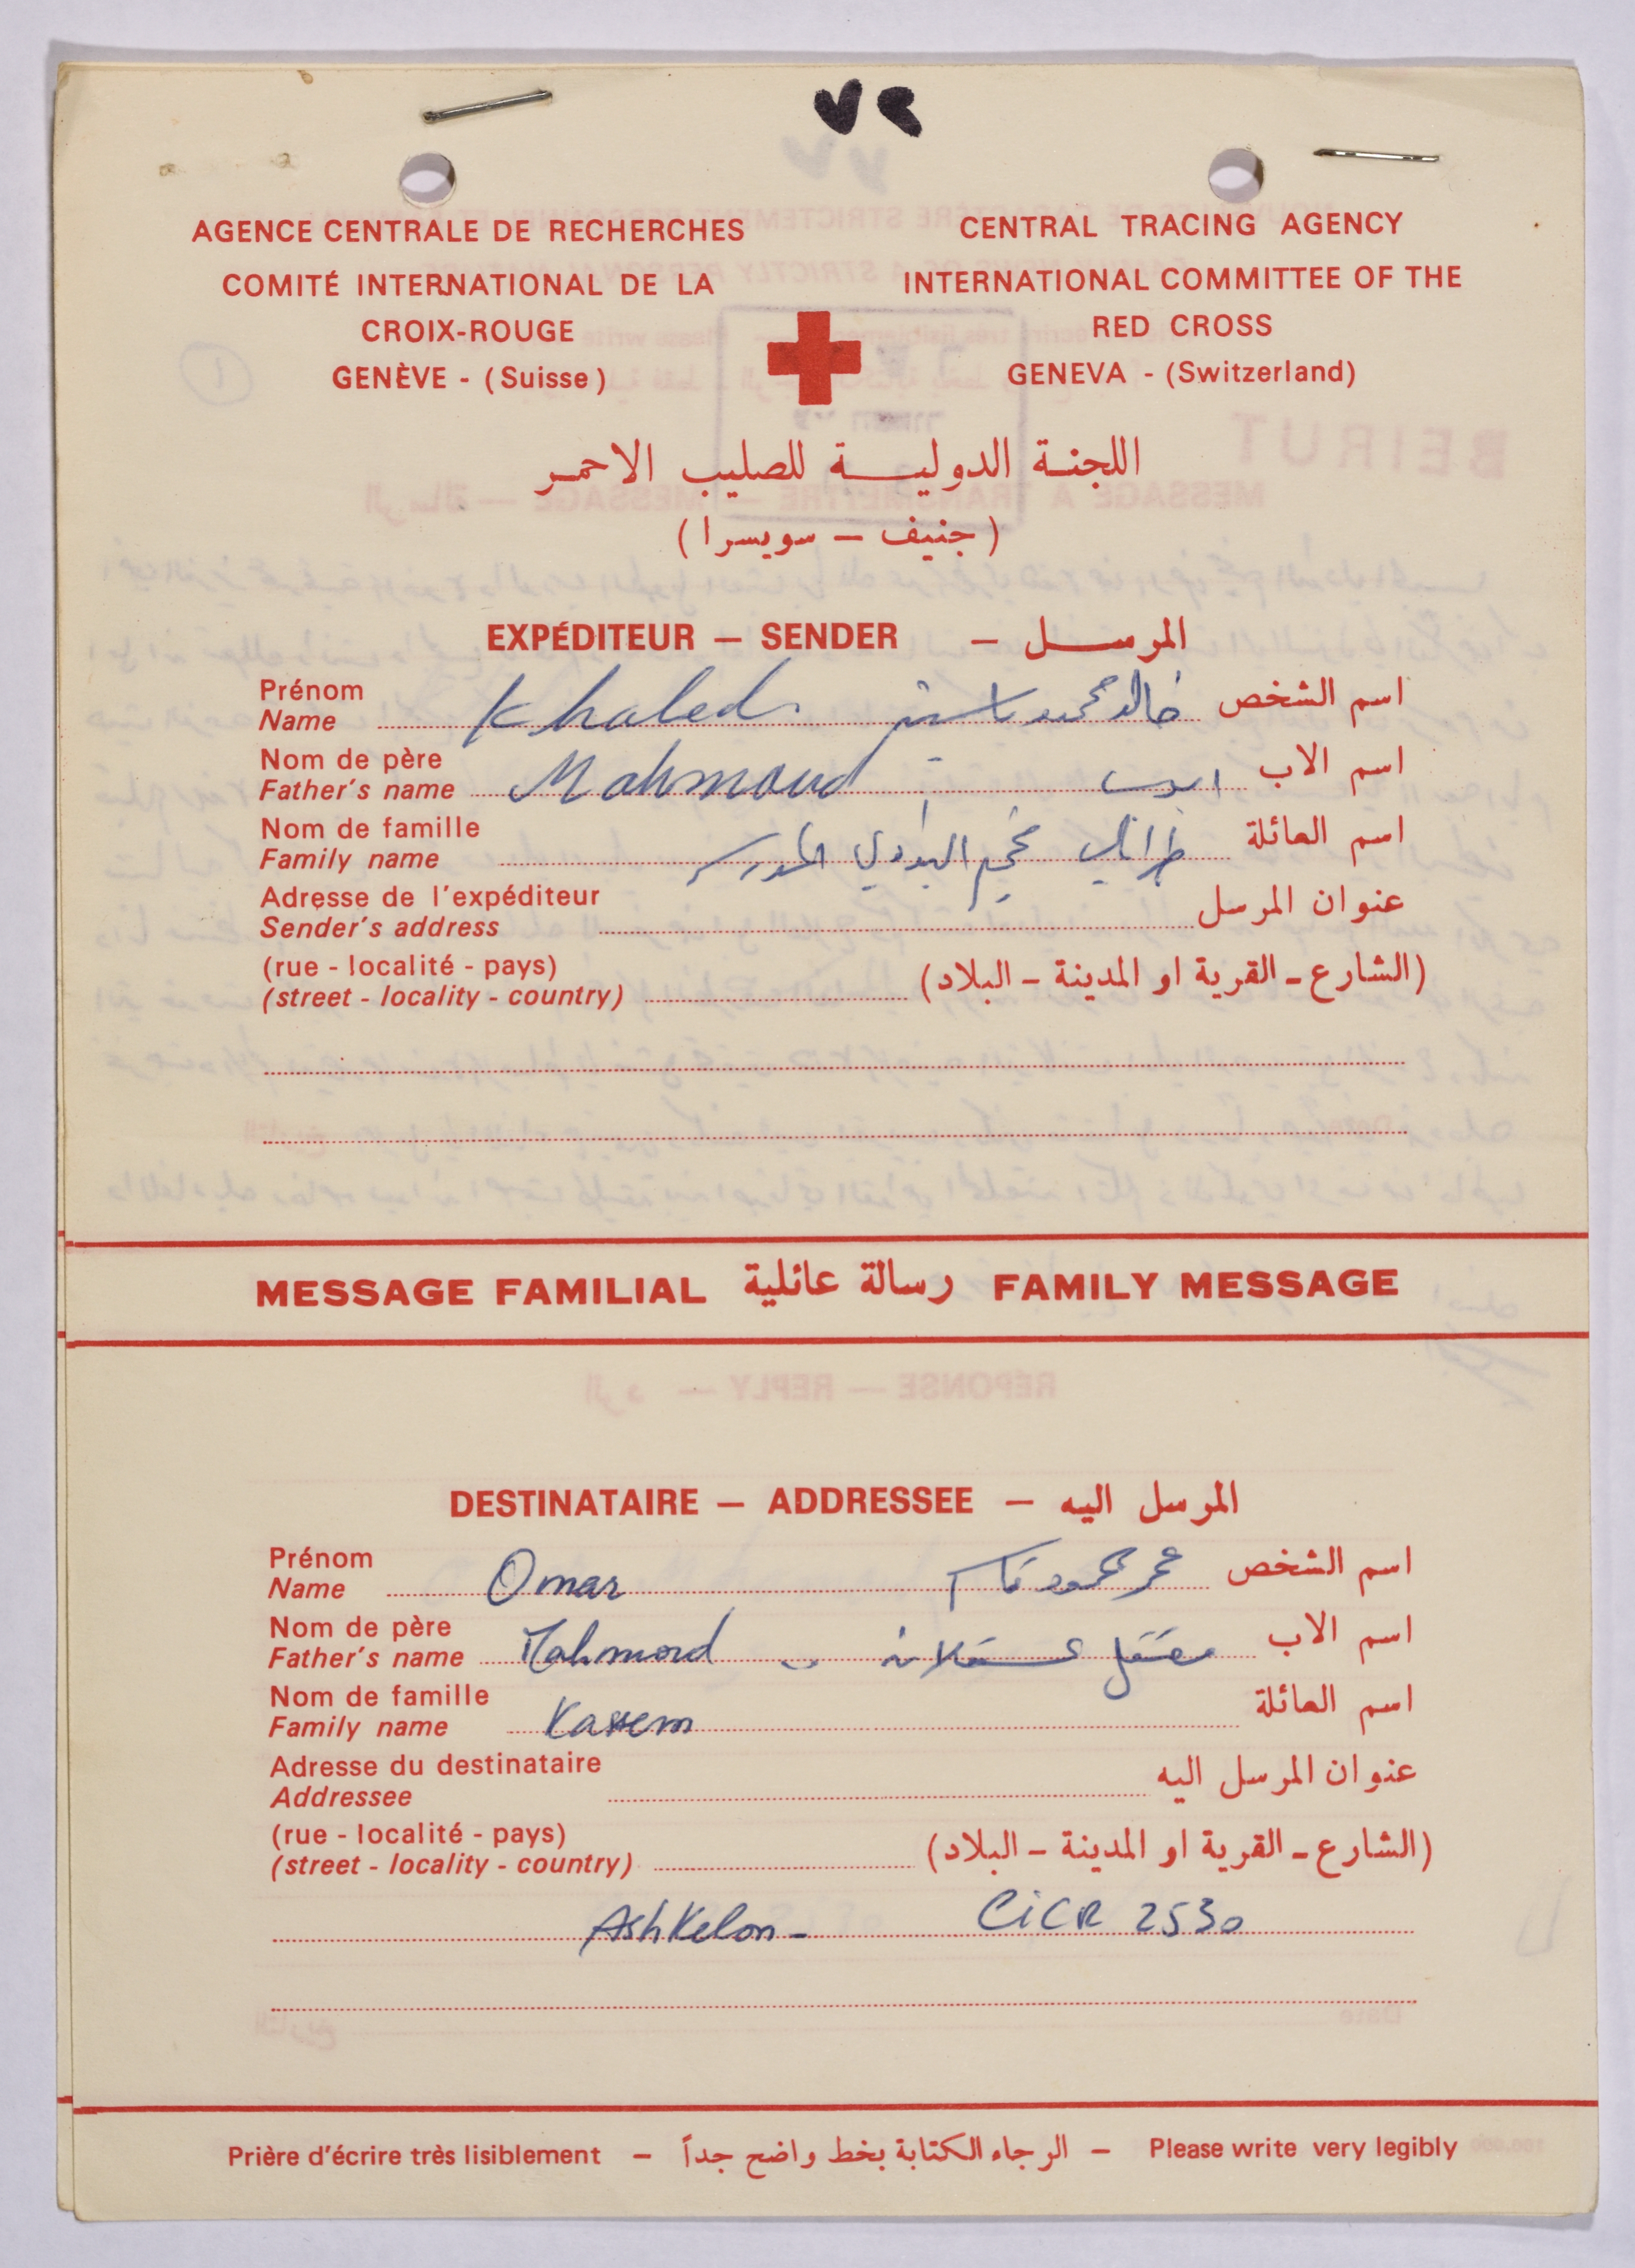 ٧٢
AGENCE CENTRALE DE RECHERCHES
COMITÉ INTERNATIONAL DE LA
CROIX-ROUGE
GENÈVE - (Suisse)
CENTRAL TRACING AGENCY
INTERNATIONAL COMMITTEE OF THE
RED CROSS
GENEVA - (Switzerland)
اللجنة الدولية للصليب الاحمر
(جنيف - سويسرا)
EXPÉDITEUR — SENDER — المرسل
Prénom
Name Khaled خالد محمد ياسين اسم الشخص
Nom de père
Father's name Mahmoud اسم الاب
Nom de famille
Family name طرابلس مخيم البداوي اسم العائلة
Adresse de l'expéditeur
Sender's address عنوان المرسل
(rue - localité - pays)
(street - locality - country) (الشارع - القرية او المدينة - البلاد)
MESSAGE FAMILIAL رسالة عائلية FAMILY MESSAGE
DESTINATAIRE — ADDRESSEE — المرسل اليه
Prénom
Name Omar عمر محمود قاسم اسم الشخص
Nom de père
Father's name Mahmoud معتقل عسقلان اسم الاب
Nom de famille
Family name Kassem اسم العائلة
Adresse du destinataire
Addressee عنوان المرسل اليه
(rue - localité - pays)
(street - locality - country) (الشارع - القرية او المدينة - البلاد)
Ashkelon - CICR 2530
Prière d'écrire très lisiblement — الرجاء الكتابة بخط واضح جداً — Please write very legibly